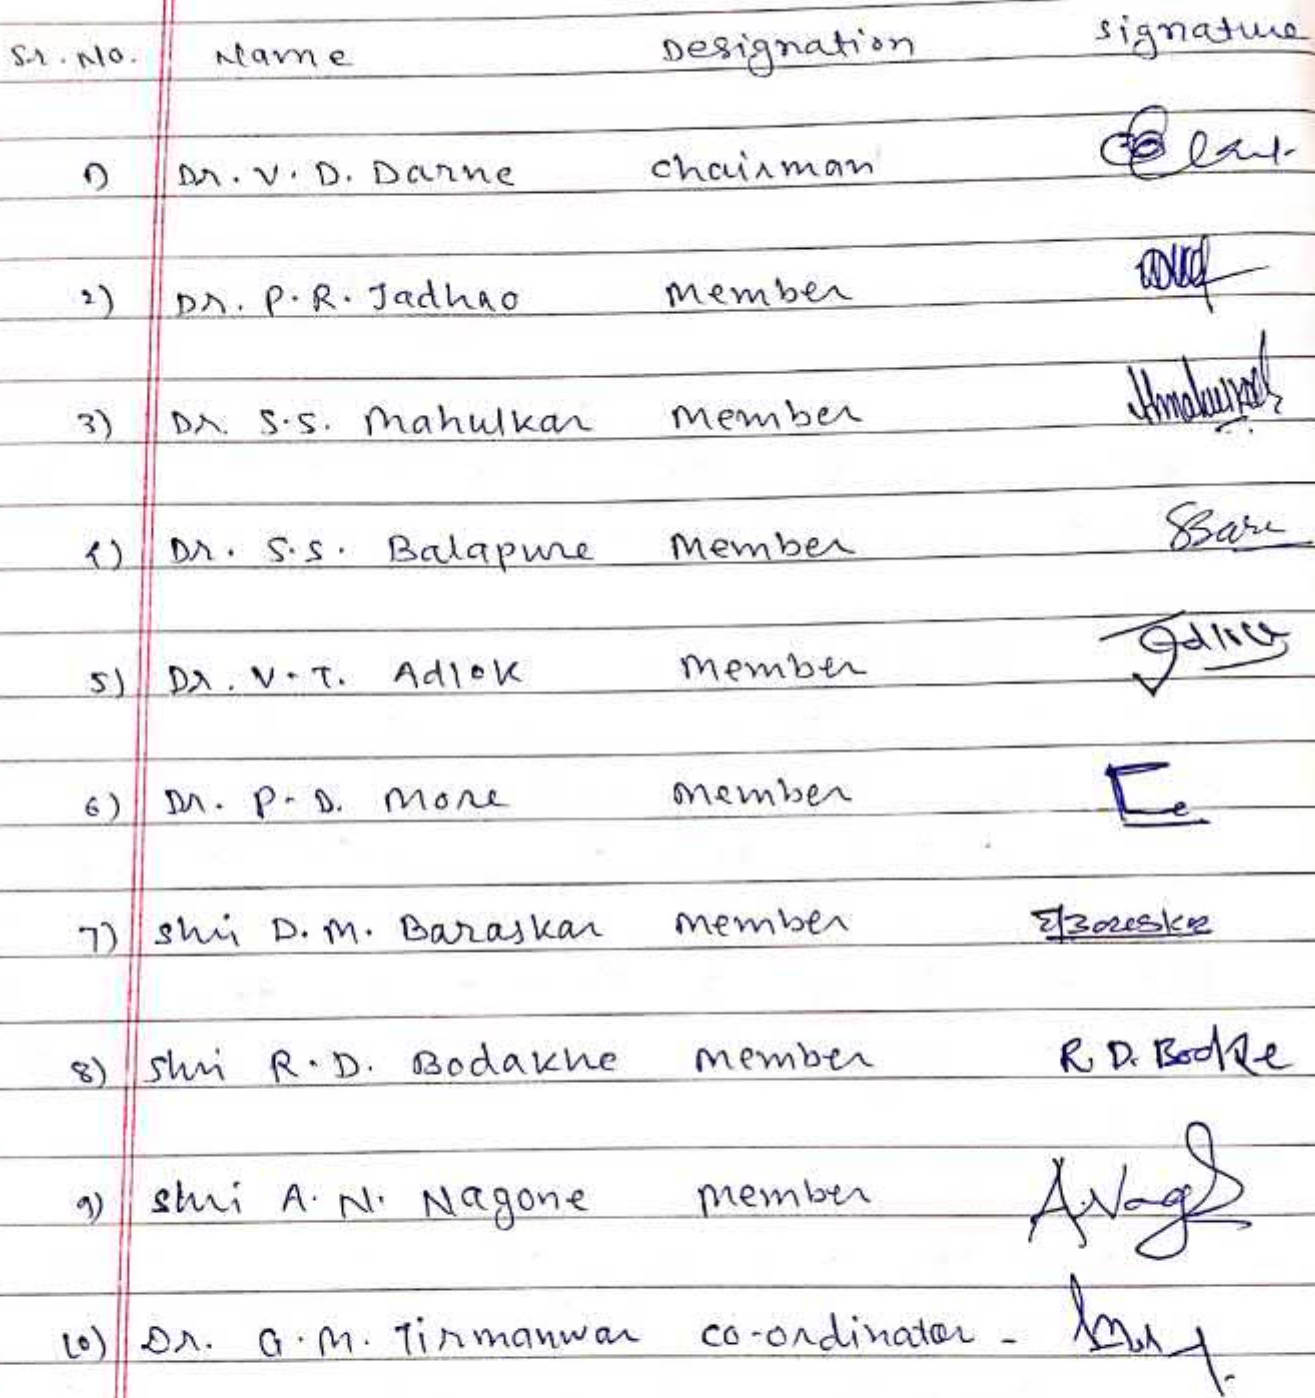 Sr. No. Name Designation Signature
1) Dr. V. D. Darne Chairman
2) Dr. P. R. Jadhao Member
3) Dr. S.S. Mahulkar Member
4) Dr. S.S. Balapure Member
5) Dr. V. T. Adlok Member
6) Dr. P. D. More Member
7) Shri D. M. Baraskar Member
8) Shri R. D. Bodakhe Member R. D. Bodkhe
9) Shri A. N. Nagone Member
10) Dr. G. M. Tirmanwar Co-ordinator -